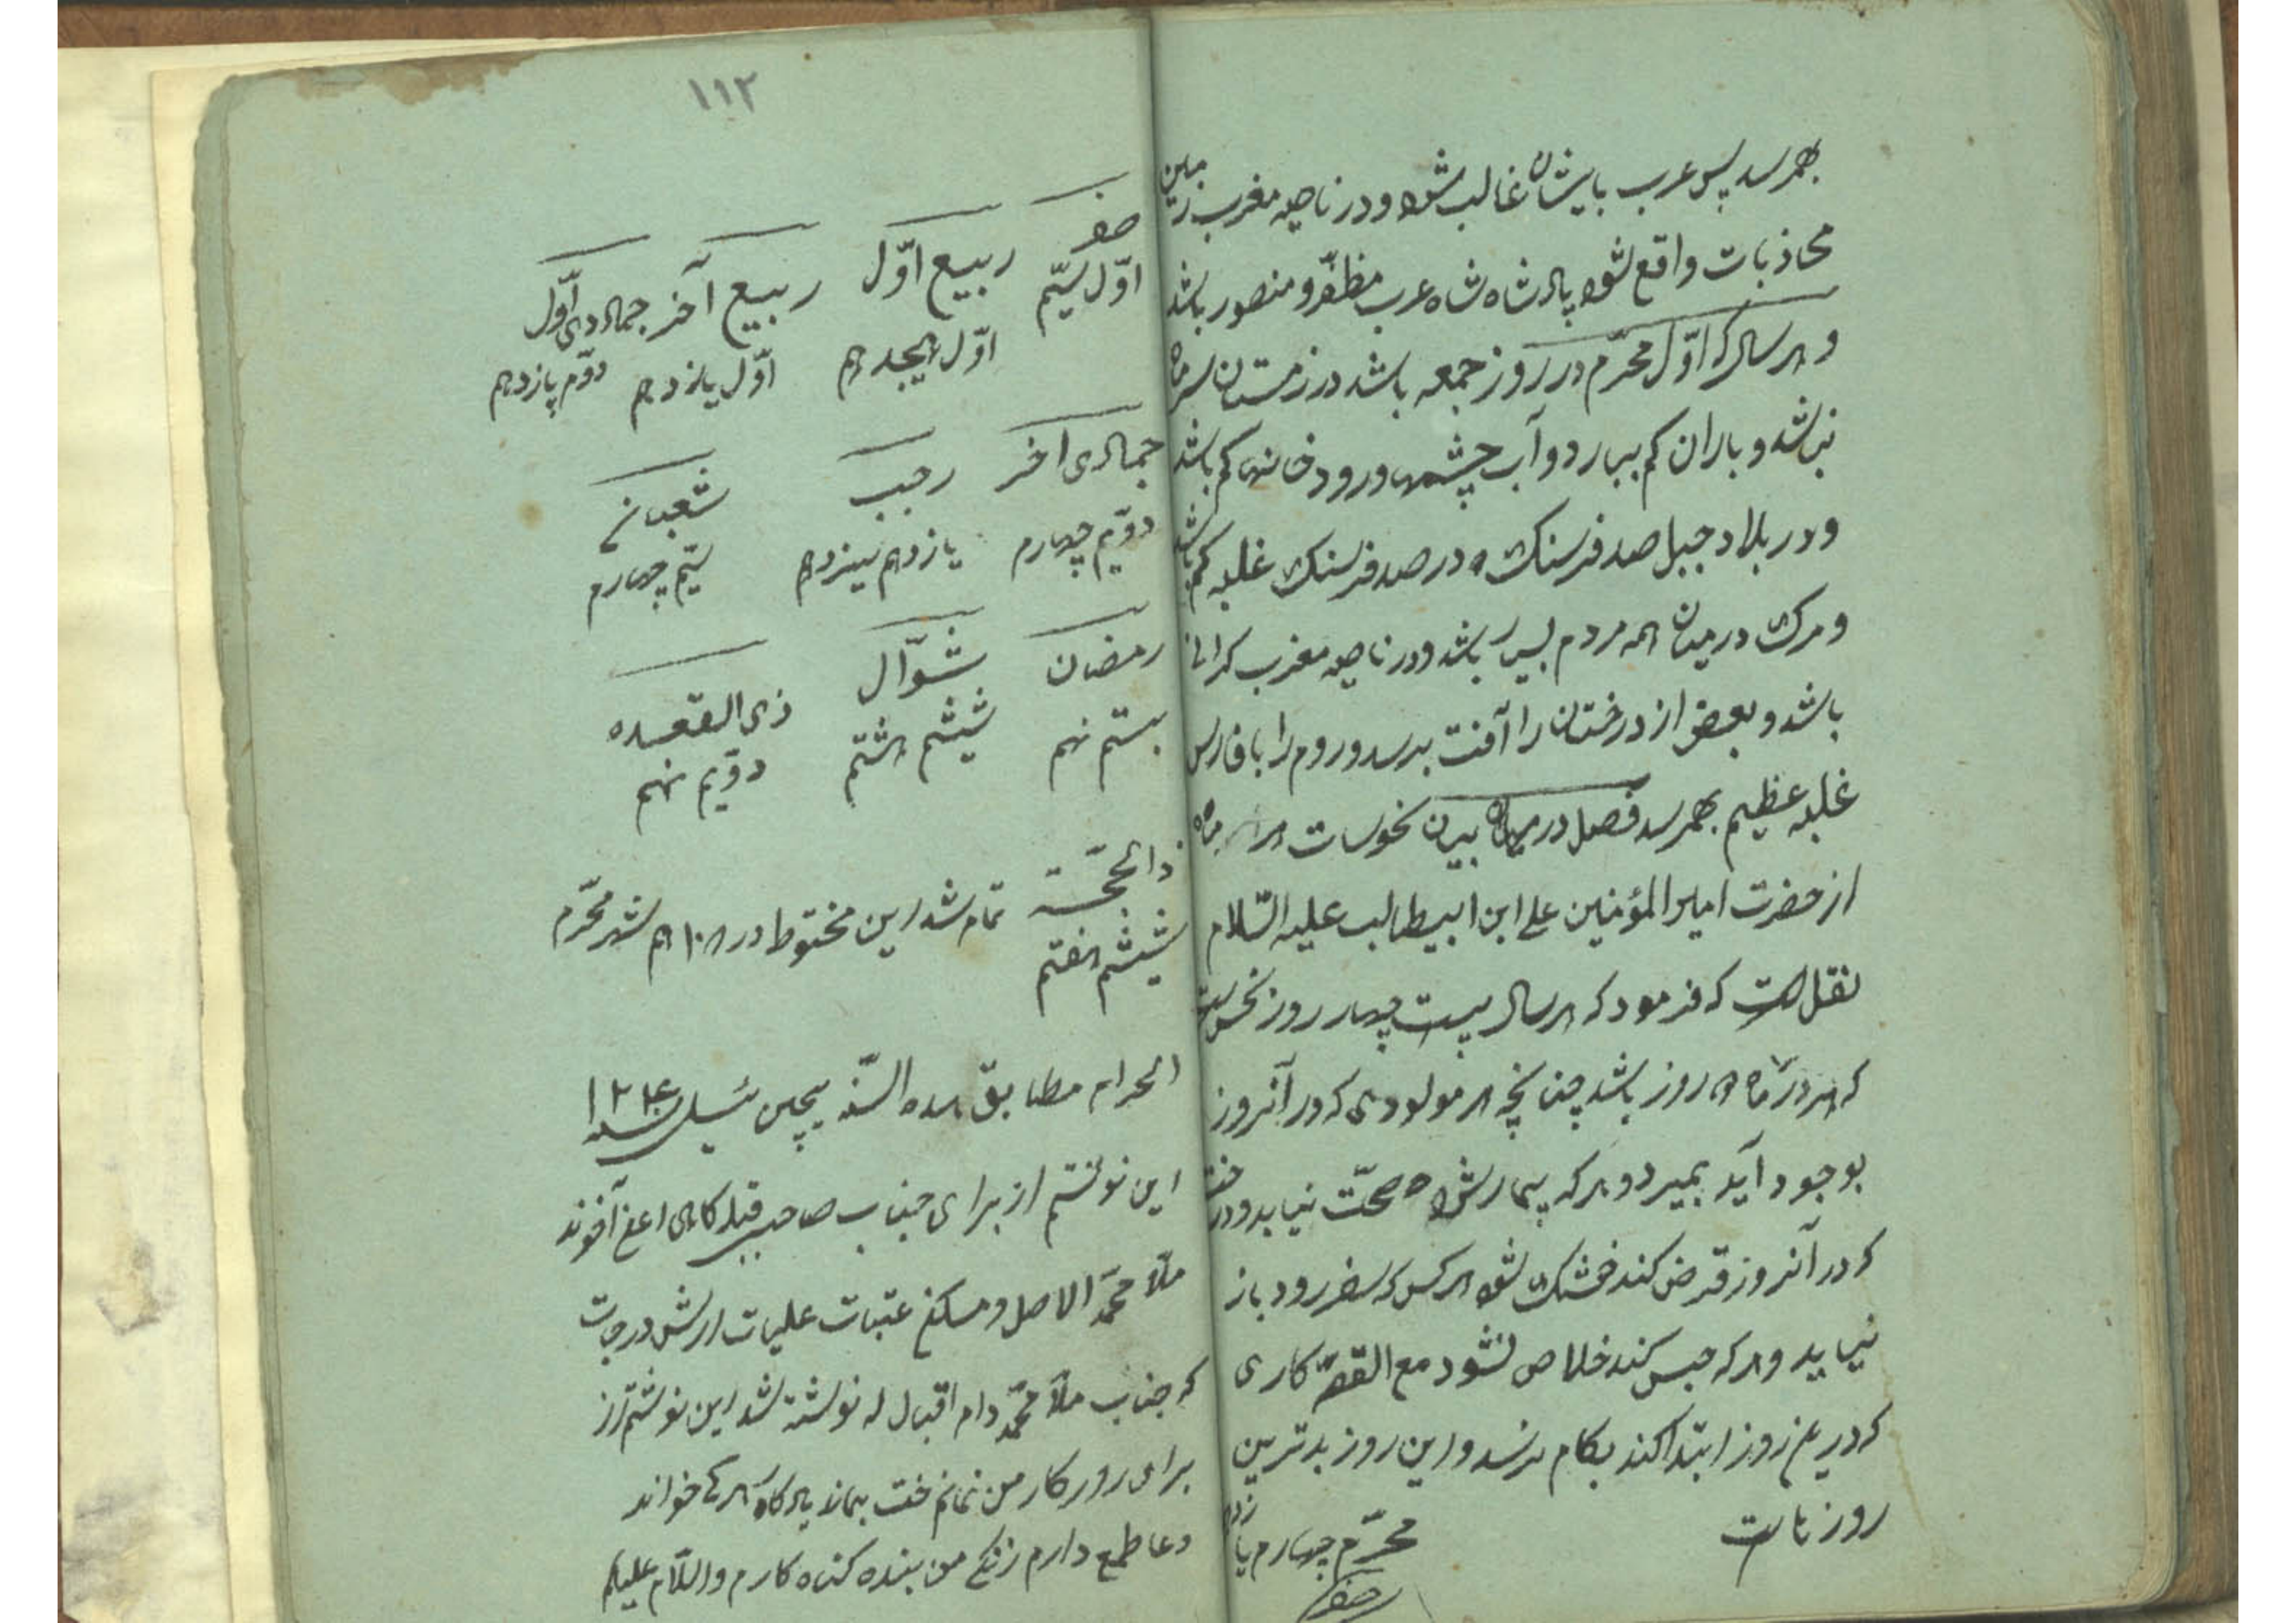 بهمرسد پس عرب بایشان غالب شود و در ناحیه مغرب زمین
محاذبات واقع شود پادشاه شاه عرب مظفّر و منصور باشد
و هر سال که اوّل محرّم در روز جمعه باشد در زمستان سرما
نباشد و باران کم ببارد و آب چشمها و رودخانها کم باشد
و در بلاد جبل صد فرسنک در صد فرسنک غلبه کم باشد
و مرک در میان همه مردم بسیار باشد و در ناحیه مغرب کرانی
باشد و بعضی از درختان را آفت برسد و روم را با فارس
غلبه عظیم بهمرسد فصل در بیان نحوسات هر ماه
از حضرت امیر المؤمنین علی ابن ابیطالب علیه السّلام
نقل است که فرمود که هر سال بیست چهار روز نحس است
که هر در ماه روز باشد چنانچه هر مولودی که در آنروز
بوجود آید بمیرد و هر که بیمار شود صحّت نیابد و درخت
که در آنروز قرض کند خشک شود هر کس که سفر رود باز
نیاید و هر که حبس کند خلاص نشود مع القصّه کاری
که در این روز ابتدا کند بکام نرسد و این روز بدترین
روزهاست محرّم چهارم یازدهم
صفر
۱۱۲
صفر ربیع اوّل ربیع آخر جمادی اوّل
اوّل سیّم اوّل هیجدهم اوّل یازدهم دوّم پازدهم
جمادی آخر رجب شعبان
دوّیم چهارم یازدهم سیزدهم سیّم چهارم
رمضان شوّال ذی القعده
بیستم نهم ششم هشتم دوّیم نهم
ذالحجّة
ششم هفتم
تمام شد این مختوط در شهر محرّم
الحرام مطابق هذه السّنه پیچی ئیل سنه ۱۲۶۴
این نوشتم از برای جناب صاحب قبله کاهی اعنی آخوند
ملّا محمّد الاصل و مسکن عتبات علیات ارش درجات
که جناب ملّا محمّد دام اقباله نوشته شد این نوشتم از
برای روزکار من نمانم خت بماند یادکار هر که خواند
دعا طمع دارم زانکه من بنده کنه کارم والسّلام علیکم